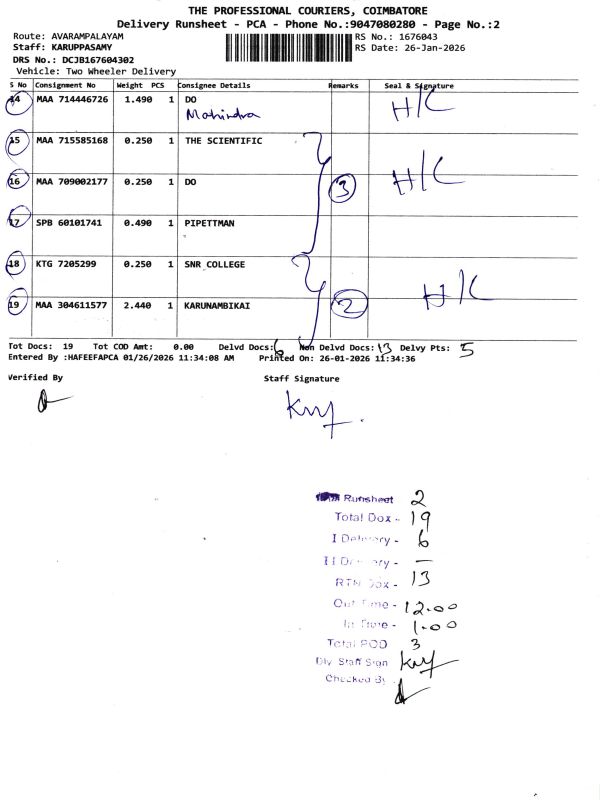 THE PROFESSIONAL COURIERS, COIMBATORE
Delivery Runsheet - PCA - Phone No.:9047080280 - Page No.:2
Route: AVARAMPALAYAM RS No.: 1676043
Staff: KARUPPASAMY RS Date: 26-Jan-2026
DRS No.: DCJB167604302
Vehicle: Two Wheeler Delivery
S No Consignment No Weight PCS Consignee Details Remarks Seal & Signature
14 MAA 714446726 1.490 1 DO H/C
Mahindra
15 MAA 715585168 0.250 1 THE SCIENTIFIC
16 MAA 709002177 0.250 1 DO 3 H/C
17 SPB 60101741 0.490 1 PIPETTMAN
18 KTG 7205299 0.250 1 SNR COLLEGE
19 MAA 304611577 2.440 1 KARUNAMBIKAI 2 H/C
Tot Docs: 19 Tot COD Amt: 0.00 Delvd Docs: 6 Non Delvd Docs: 13 Delvy Pts: 5
Entered By :HAFEEFAPCA 01/26/2026 11:34:08 AM Printed On: 26-01-2026 11:34:36
Verified By Staff Signature
Runsheet 2
Total Dox - 19
I Delivery - 6
II Delivery - —
RTN Dox - 13
Out Time - 12.00
In Time - 1.00
Total POD 3
Dly Staff Sign
Checked By